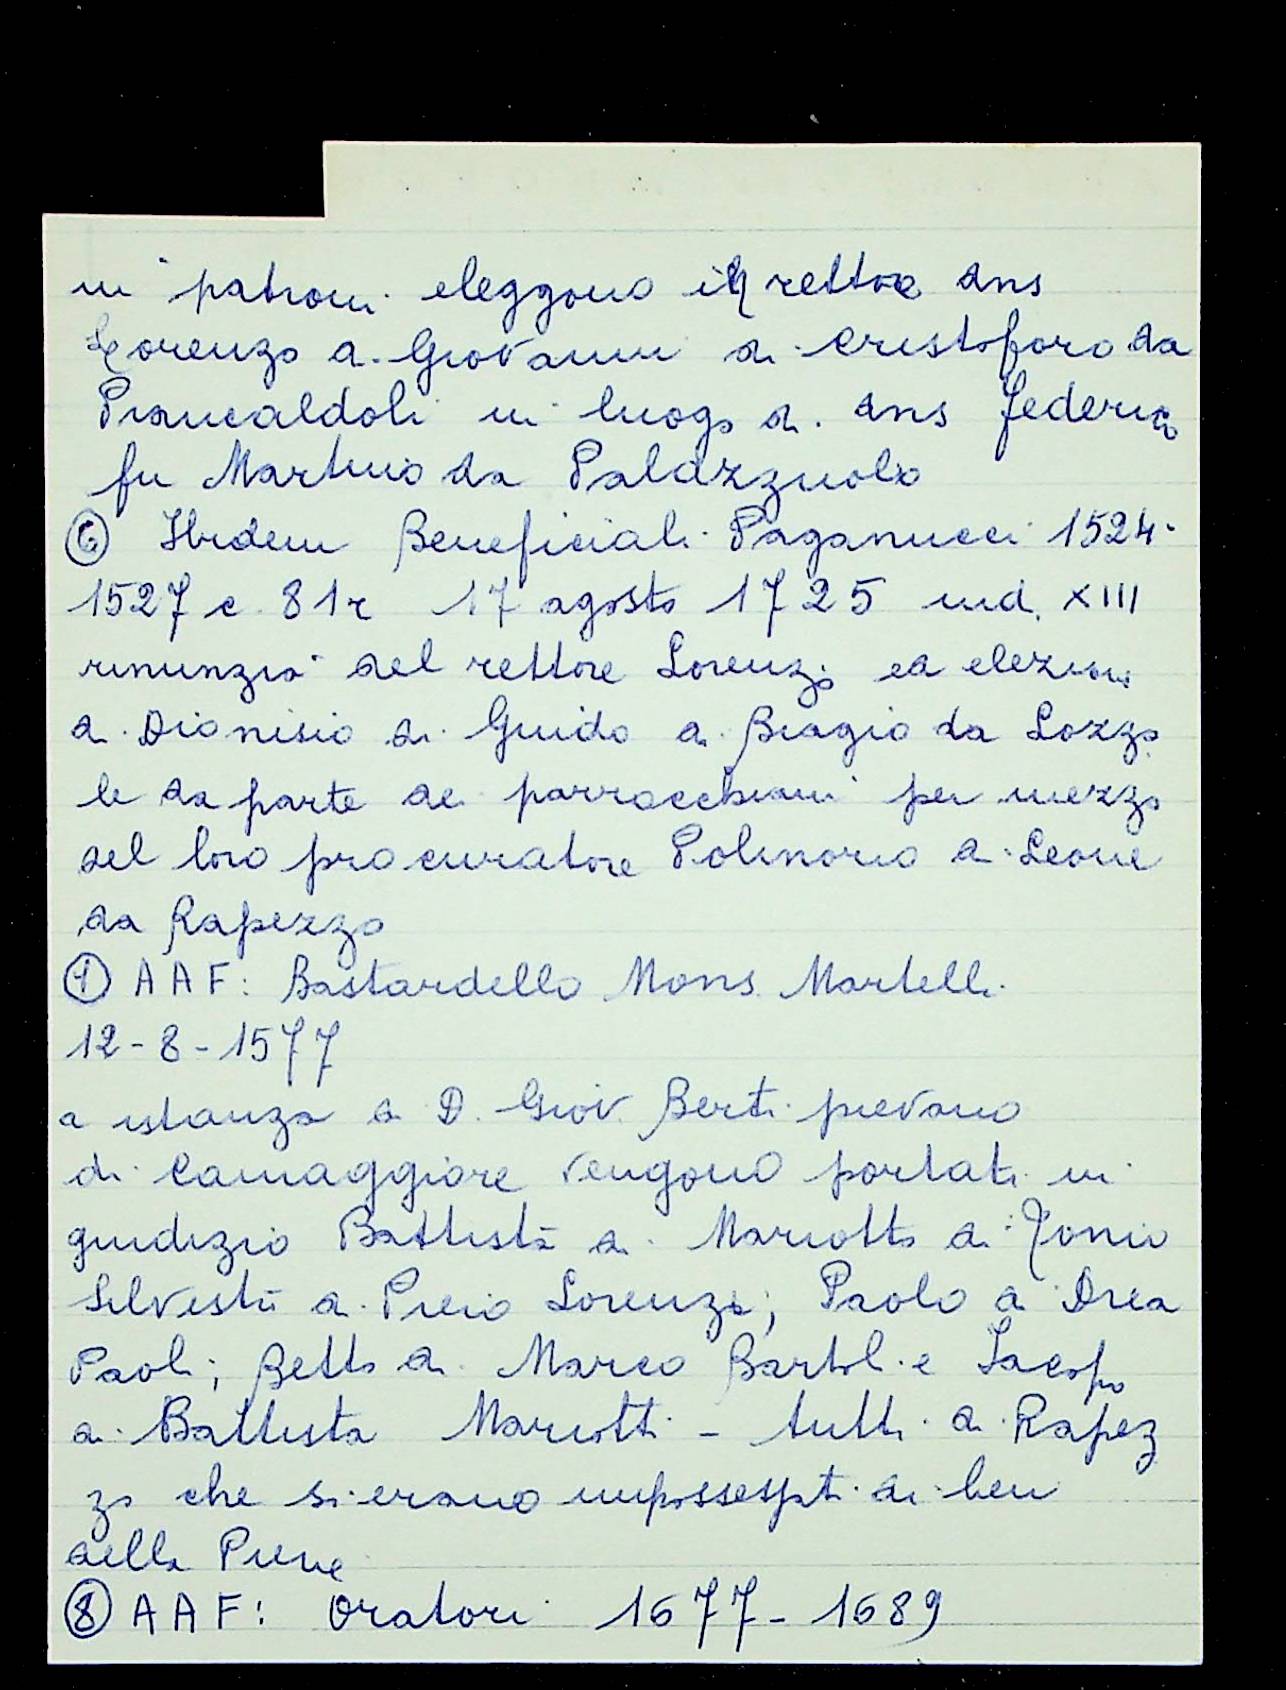 ni patroni eleggono il rettore dns
Lorenzo di Giovanni di Cristoforo da
Piancaldoli in luogo di dns Federico
fu Martino da Palazzuolo
⑥ Ibidem Beneficiali Paganucci 1524-
1527 c. 81r 17 agosto 1725 ind. XIII
rinunzia del rettore Lorenzo ed elezione
di Dionisio di Guido di Biagio da Lozzo
le da parte dei parrocchiani per mezzo
del loro procuratore Polinorio di Leone
da Rapezzo
⑦ AAF: Bastardello Mons. Martelli
12-8-1577
a istanza di D. Giov. Berti pievano
di Camaggiore vengono portati in
giudizio Battista di Mariotto di Tonio
Silvestri di Piero Lorenzi; Paolo di Drea
Paoli; Betto di Marco Bartol. e Jacopo
di Battista Mariotti - tutti di Rapez
zo che si erano impossessati di beni
della Pieve
⑧ AAF: Oratori 1677-1689